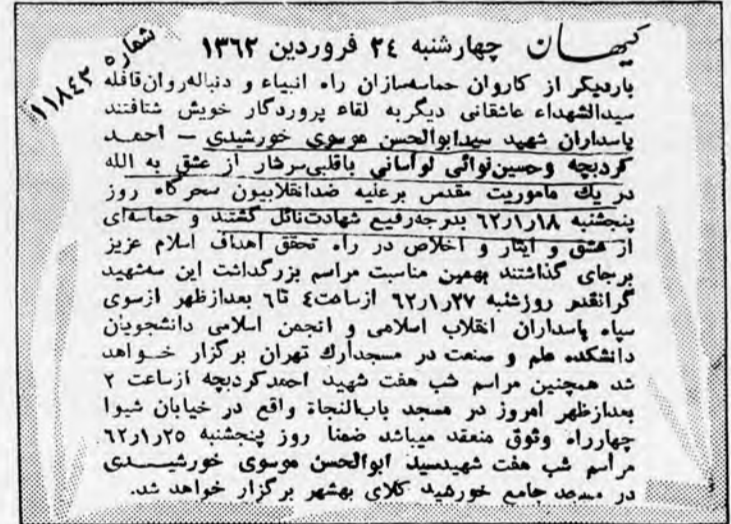 کیهان چهارشنبه ٢٤ فروردین ١٣٦٢
شماره ١١٨٤٣
باردیگر از کاروان حماسه‌سازان راه انبیاء و دنباله‌روان قافله
سیدالشهداء عاشقانی دیگر به لقاء پروردگار خویش شتافتند
پاسداران شهید سیدابوالحسن موسوی خورشیدی – احمد
کردبچه وحسین‌نوائی لواسانی باقلبی‌سرشار از عشق به الله
در یك ماموریت مقدس برعلیه ضدانقلابیون سحرگاه روز
پنجشنبه ٦٢ر١ر١٨ بدرجه‌رفیع شهادت‌نائل گشتند و حماسه‌ای
از عشق و ایثار و اخلاص در راه تحقق اهداف اسلام عزیز
برجای گذاشتند بهمین مناسبت مراسم بزرگداشت این سه‌شهید
گرانقدر روزشنبه ٦٢ر١ر٢٧ ازساعت٤ تا٦ بعدازظهر ازسوی
سپاه پاسداران انقلاب اسلامی و انجمن اسلامی دانشجویان
دانشکده علم و صنعت در مسجدارك تهران برگزار خواهد
شد همچنین مراسم شب هفت شهید احمدکردبچه ازساعت ٢
بعدازظهر امروز در مسجد باب‌النجاة واقع در خیابان شیوا
چهارراه وثوق منعقد میباشد ضمنا روز پنجشنبه ٦٢ر١ر٢٥
مراسم شب هفت شهیدسید ابوالحسن موسوی خورشیدی
در مسجد جامع خورشید کلای بهشهر برگزار خواهد شد.